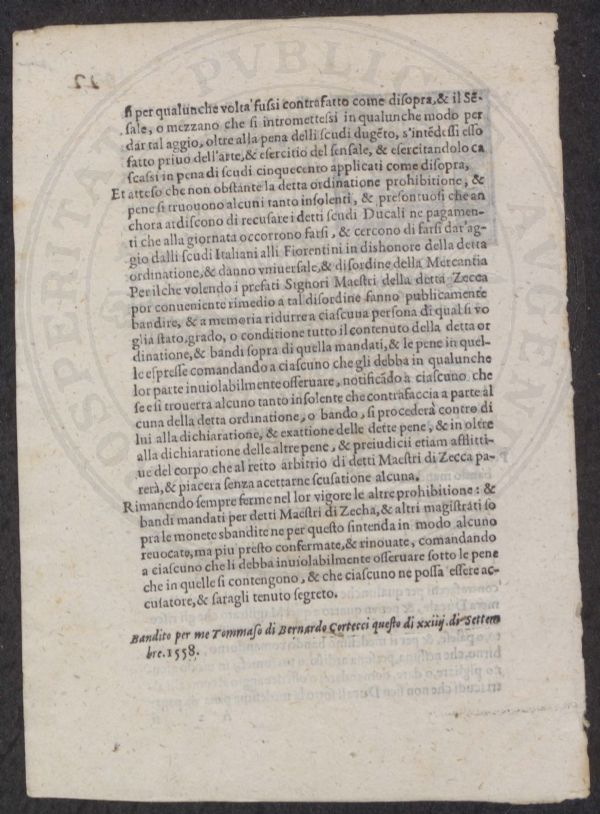 si per qualunche volta fussi contrafatto come disopra, & il Sē-
sale, o mezzano che si intromettessi in qualunche modo per
dar tal aggio, oltre alla pena delli scudi dugēto, s'intēdessi esso
fatto priuo dell'arte, & esercitio del sensale, & esercitandolo ca
scassi in pena di scudi cinquecento applicati come disopra,
Et atteso che non obstāte la detta ordinatione prohibitione, &
pene si truouono alcuni tanto insolenti, & presontuosi che an
chora ardiscono di recusare i detti scudi Ducali ne pagamen-
ti che alla giornata occorrono farsi, & cercono di farsi dar'ag-
gio dalli scudi Italiani alli Fiorentini in dishonore della detta
ordinatione, & dānno vniuersale, & disordine della Mercantia
Per il che volendo i prefati Signori Maestri della detta Zecca
por conueniente rimedio a tal disordine fanno publicamente
bandire, & a memoria ridurre a ciascuna persona di qual si vo
glia stato, grado, o conditione tutto il contenuto della detta or
dinatione, & bandi sopra di quella mandati, & le pene in quel-
le espresse comandando a ciascuno che gli debba in qualunche
lor parte inuiolabilmente osseruare, notificādo à ciascuno che
se e si trouerra alcuno tanto insolente che contrafaccia a parte al
cuna della detta ordinatione, o bando, si procederà contro di
lui alla dichiaratione, & exattione delle dette pene, & in oltre
alla dichiaratione delle altre pene, & preiudicii etiam afflitti-
ue del corpo che al retto arbitrio di detti Maestri di Zecca pa-
rerà, & piacera senza accettarne scusatione alcuna.
Rimanendo sempre ferme nel lor vigore le altre prohibitione: &
bandi mandati per detti Maestri di Zecha, & altri magistrati so
pra le monete sbandite ne per questo sintenda in modo alcuno
reuocate, ma piu presto confermate, & rinouate, comandando
a ciascuno che li debba inuiolabilmente osseruare sotto le pene
che in quelle si contengono, & che ciascuno ne possa essere ac-
cusatore, & saragli tenuto segreto.
Bandito per me Tommaso di Bernardo Cortecci questo di xxiiij. di Settem
bre. 1558.